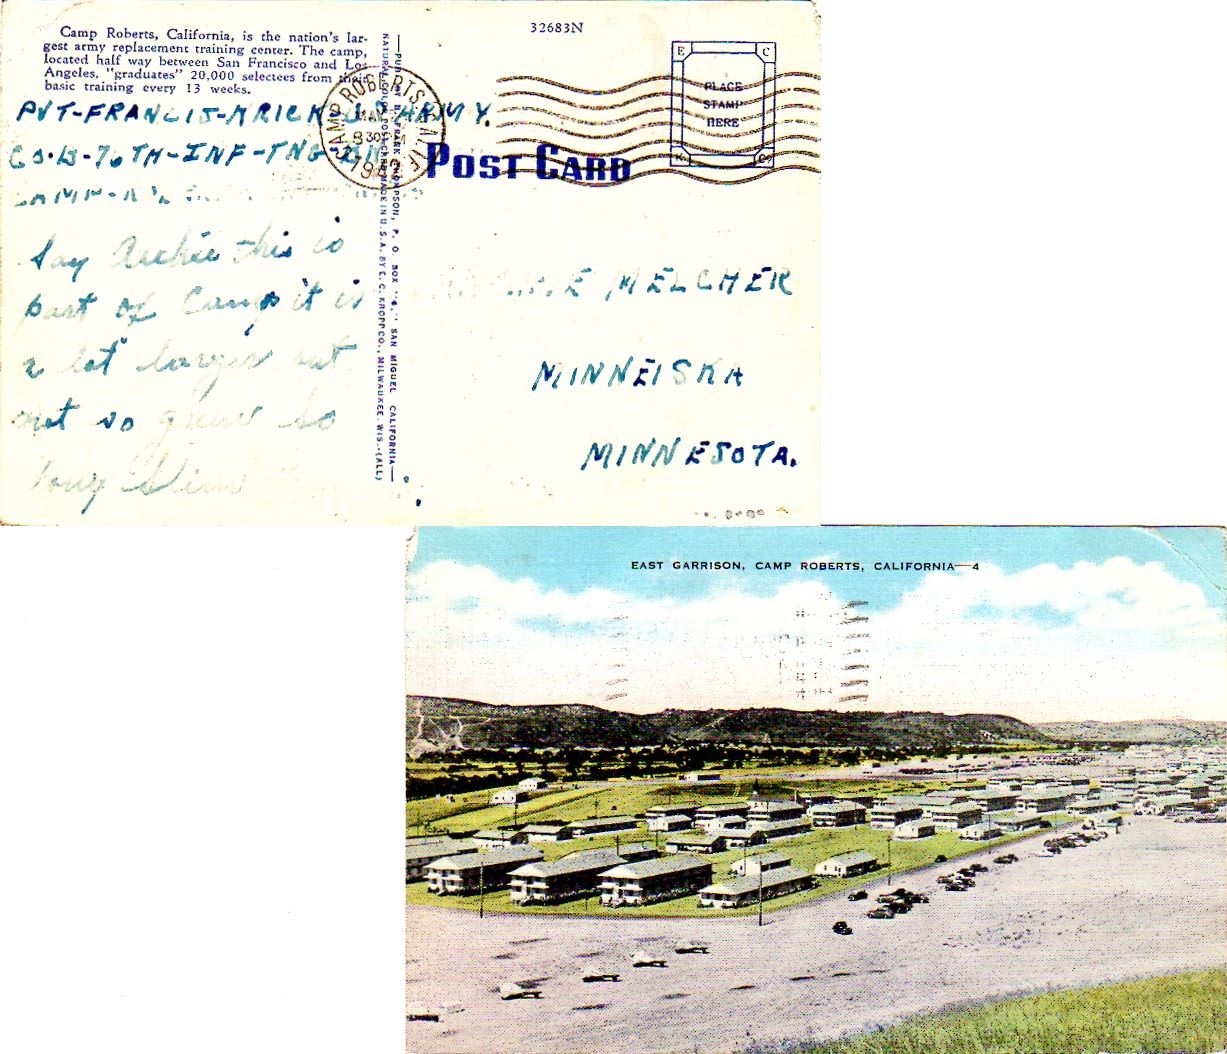 Camp Roberts, California, is the nation's lar-
gest army replacement training center. The camp,
located half way between San Francisco and Los
Angeles, "graduates" 20,000 selectees from their
basic training every 13 weeks.
PVT-FRANCIS-KRICK U.S. ARMY.
CO. B-76TH-INF-TNG-BN
CAMP
Say Archie this is
part of Camp it is
a lot larger but
not so green So
long Slim
PUB. BY H. FRANK THOMPSON, P. O. BOX "4," SAN MIGUEL CALIFORNIA
NATURAL COLOR POST CARD MADE IN U.S.A. BY E. C. KROPP CO., MILWAUKEE, WIS.-(ALL)
32683N
CAMP ROBERTS, CALIF.
MAY
8 30
194
E C
PLACE
STAMP
HERE
K Co
POST CARD
MELCHER
MINNEISKA
MINNESOTA.
EAST GARRISON, CAMP ROBERTS, CALIFORNIA—4